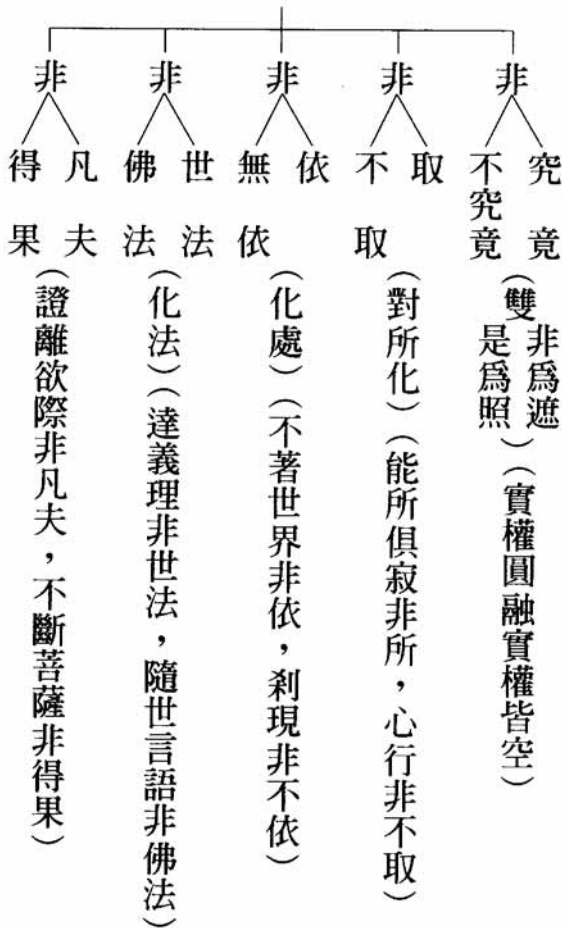 非
究竟
不究竟
（雙非爲遮是爲照）（實權圓融實權皆空）
非
取
不取
（對所化）（能所俱寂非所，心行非不取）
非
依
無依
（化處）（不著世界非依，剎現非不依）
非
世法
佛法
（化法）（達義理非世法，隨世言語非佛法）
非
凡夫
得果
（證離欲際非凡夫，不斷菩薩非得果）